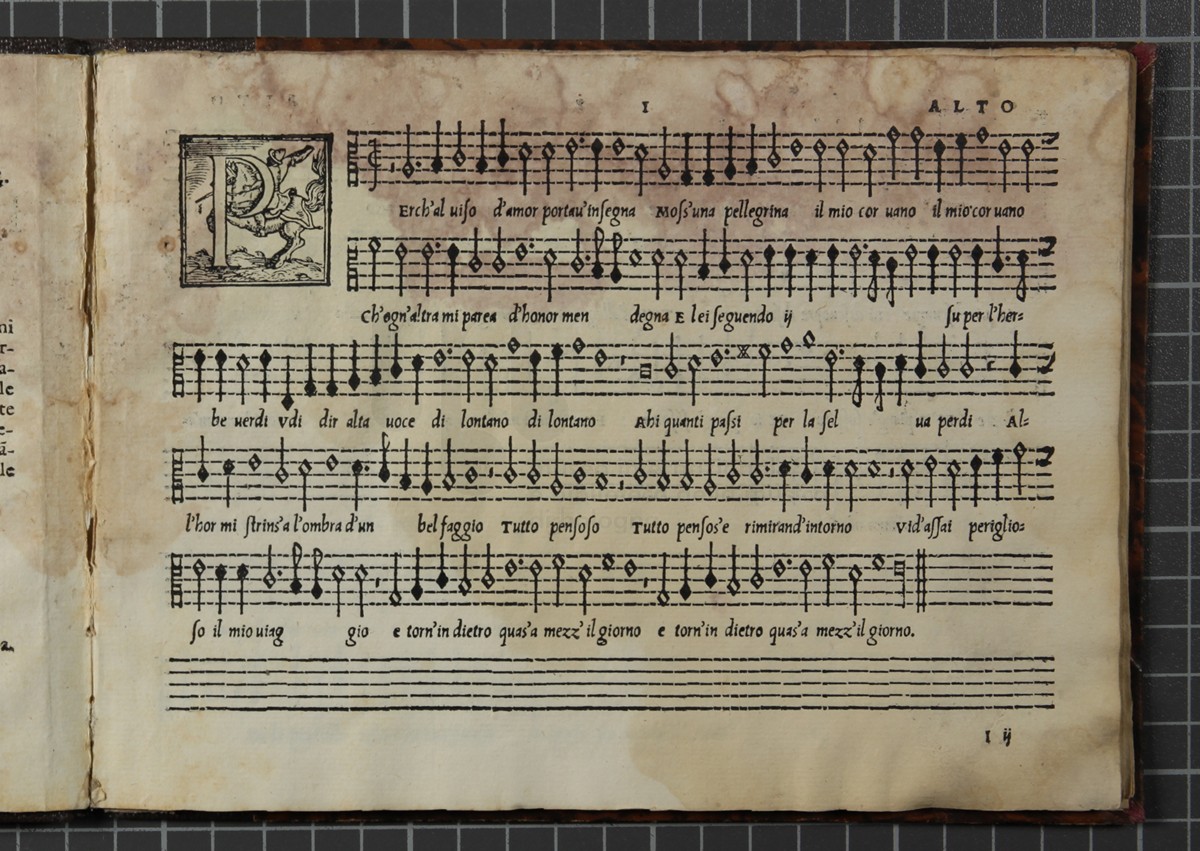 I ALTO
PErch'al uiso d'amor portau'insegna Moss'una pellegrina il mio cor uano il mio cor uano
Ch'ogn'altra mi parea d'honor men degna E lei seguendo ij su per l'her=
be uerdi Vdi dir alta uoce di lontano di lontano Ahi quanti passi per la sel ua perdi Al=
l'hor mi strins'a l'ombra d'un bel faggio Tutto pensoso Tutto pensos'e rimirand'intorno Vid'assai periglio=
so il mio uiag gio e torn'in dietro quas'a mezz'il giorno e torn'in dietro quas'a mezz'il giorno.
I ij